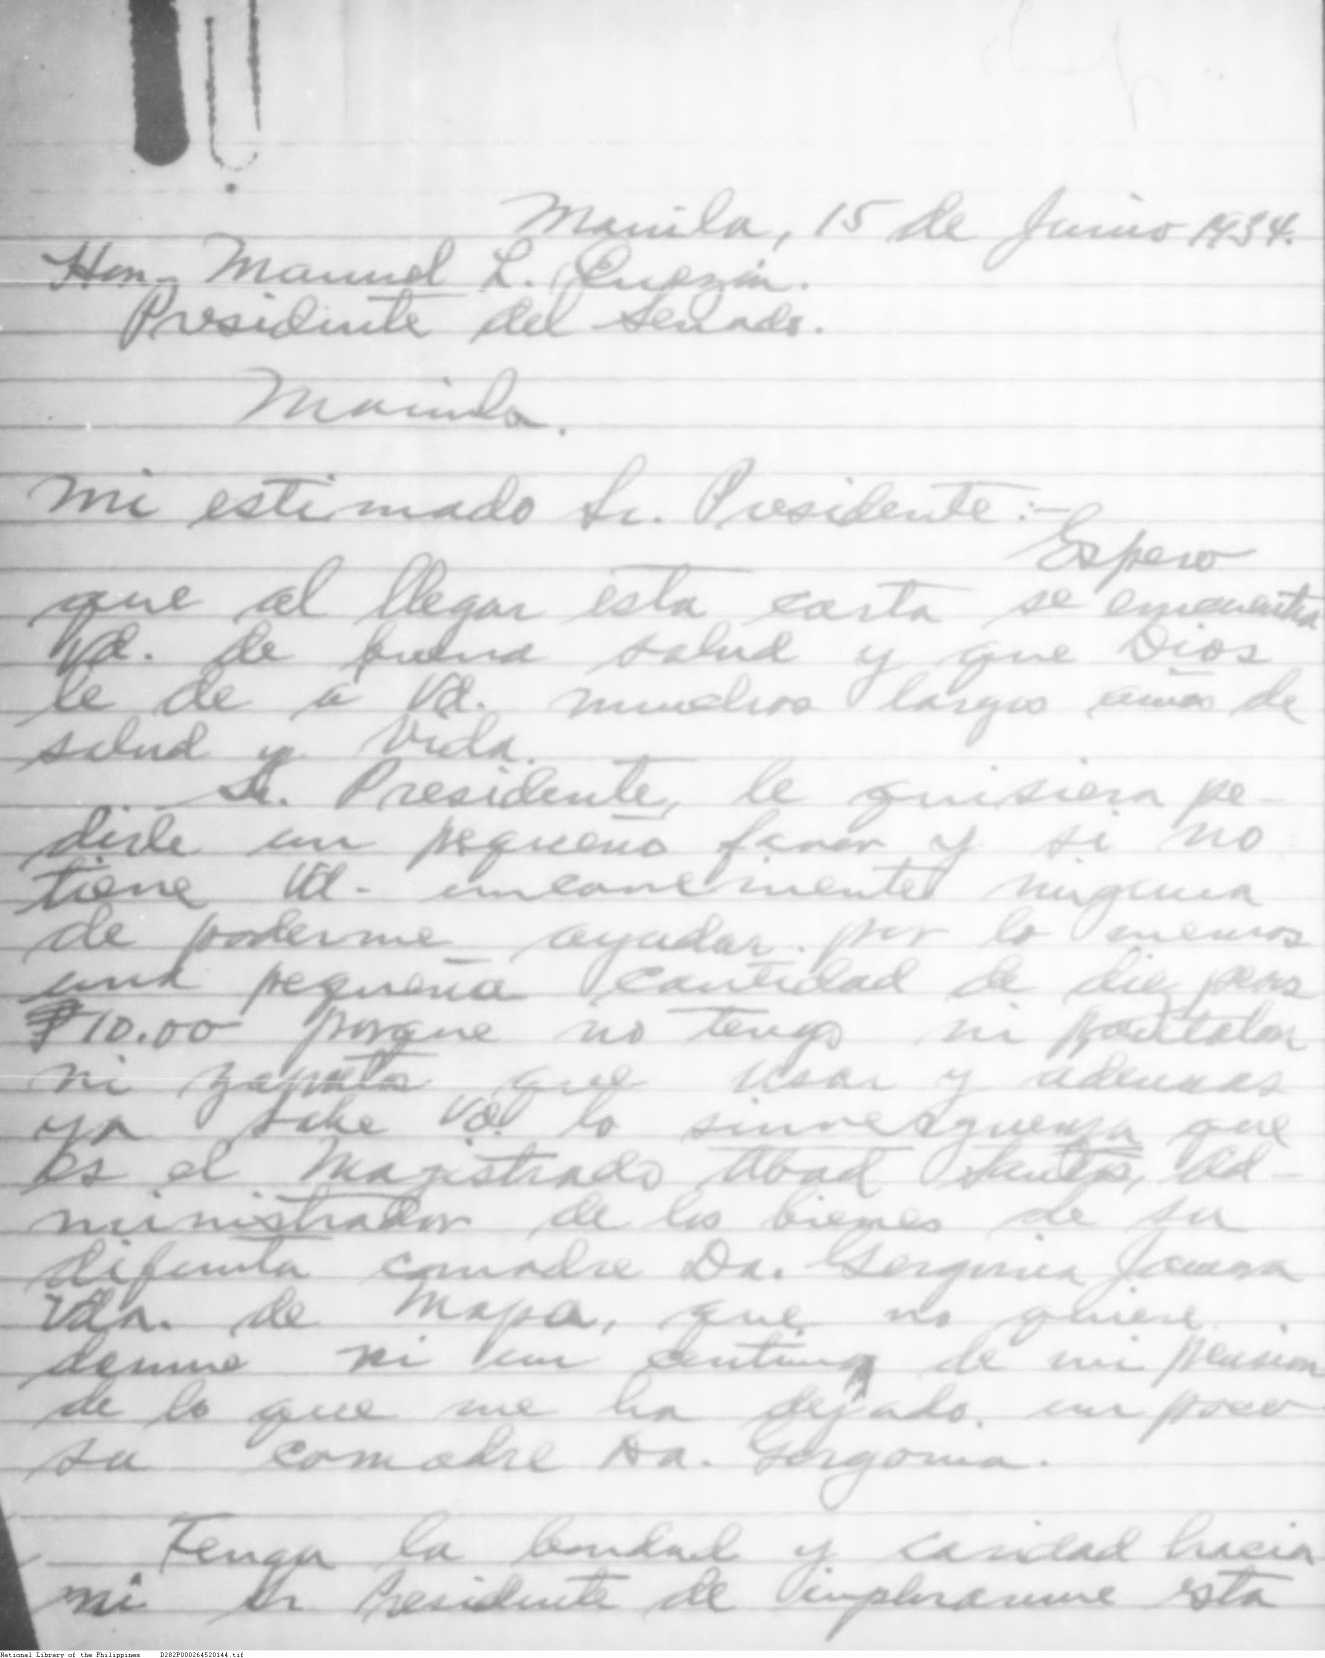 Manila, 15 de Junio 1934.
Hon. Manuel L. Quezon.
Presidente del Senado.
Manila.
Mi estimado Sr. Presidente:-
Espero
que al llegar esta carta se encuentra
Vd. de buena salud y que Dios
le de a Vd. muchos largos años de
salud y vida.
Sr. Presidente, le quisiera pe-
dirle un pequeño favor y si no
tiene Vd. inconveniente ninguna
de poderme ayudar por lo menos
una pequeña cantidad de diez pesos
₱10.00 porque no tengo ni pantalon
ni zapatos que usar y ademas
ya sabe Vd. lo sinverguenza que
es el Magistrado Abad Santos, Ad-
ministrador de los bienes de su
difunta comadre Da. Gergonia
Vda. de Mapa, que no quiere
darme ni un centimo de mi pension
de lo que me ha dejado un poco
su comadre Da. Gergonia.
Tenga la bondad y caridad hacia
mi Sr Presidente de implorarme esta
National Library of the Philippines D282P000264520144.tif